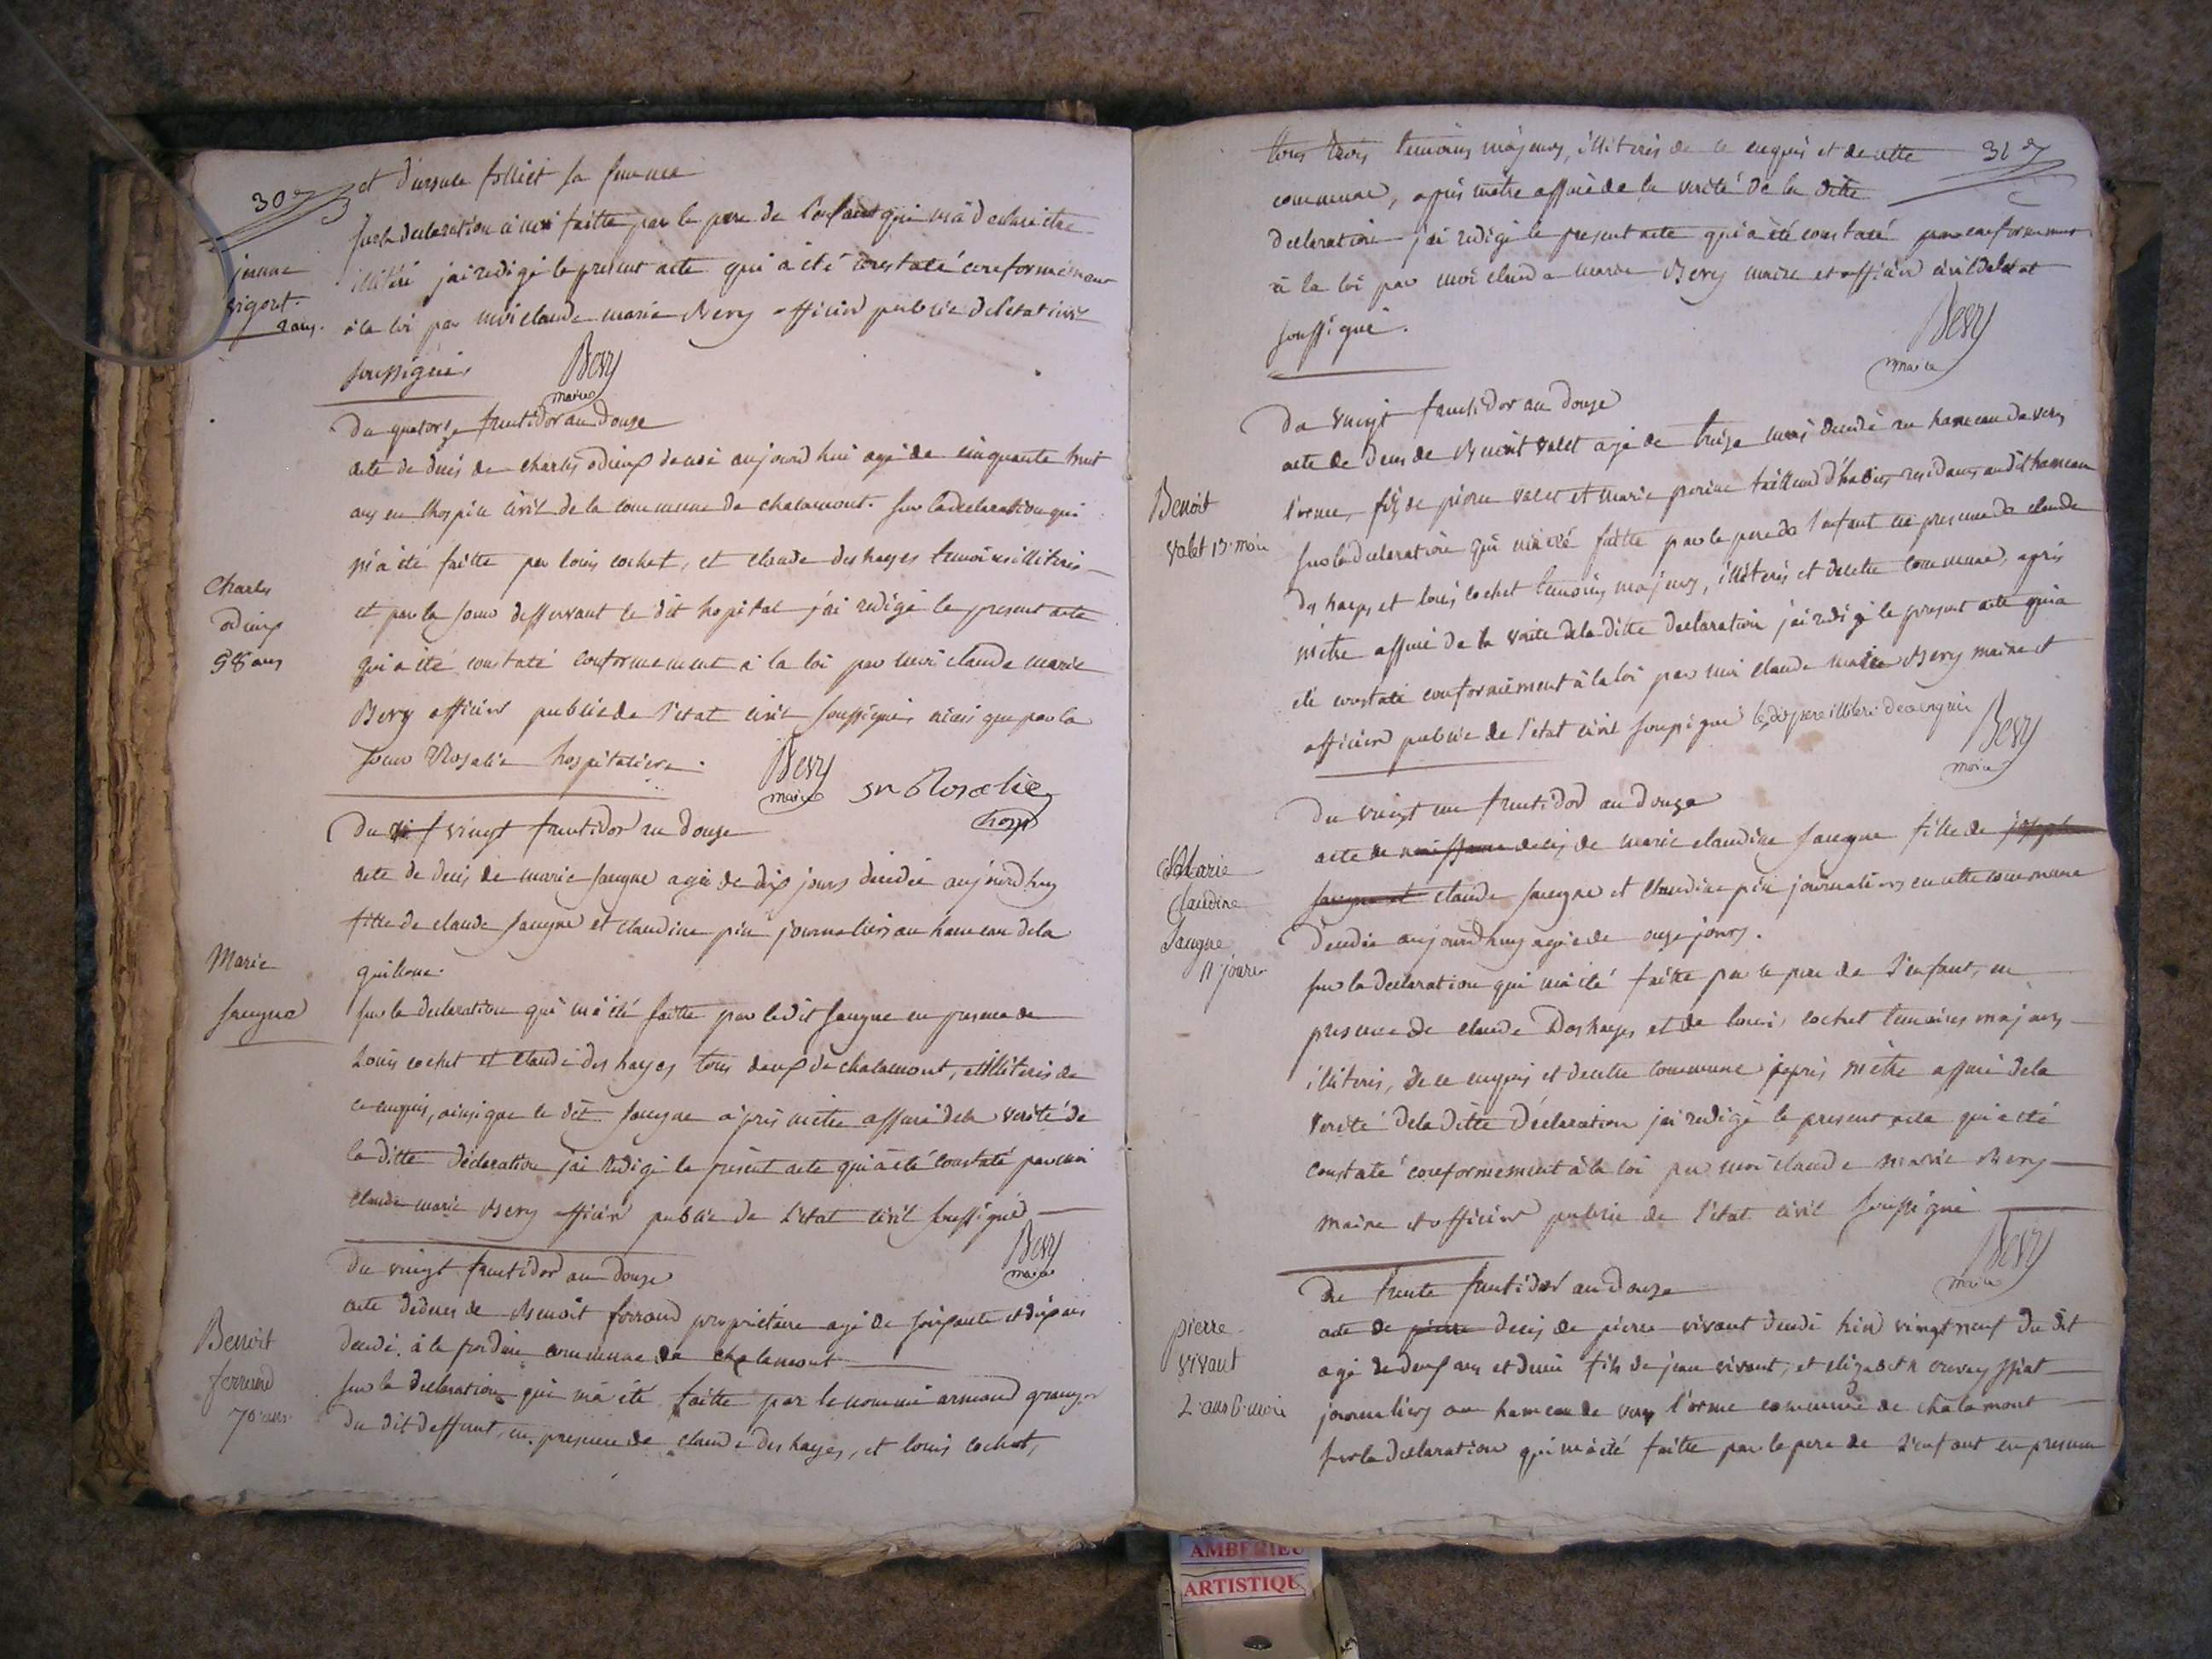 30
et d'ursule folliet sa femme
sur la declaration à moi faitte par le pere de l'enfant qui m'a declaré etre
jeanne
illiteré j'ai redigé le present acte qui a été constaté conformement
vigort.
2 ans.
à la loi par moi claude marie Bery officier public de l'etat civil
soussigné.
Bery
maire
Du quatorze fructidor an douze
acte de decès de charles odieux decedé aujourd'hui agé de cinquante huit
ans en l'hospice civil de la commune de chalamont. sur la declaration qui
m'a été faitte par louis cochet, et claude deshayes temoins illiterés
Charles
odieux
58 ans
et par la soeur desservant le dit hopital j'ai redigé le present acte
qui a été constaté conformement à la loi par moi claude marie
Bery officier public de l'etat civil soussigné, ainsi que par la
soeur Rosalie hospitaliere.
Bery
maire
sr Rosalie
hosp
Du vingt fructidor an douze
acte de decès de marie saugne agée de dix jours decedée aujourd'huy
fille de claude saugne et claudine pin journaliers au hameau de la
Marie
saugne
sur la declaration qui m'a été faitte par le dit saugne en presence de
Louis cochet et claude deshayes tous deux de chalamont, illiterés de
ce enquis, ainsi que le dit saugne après m'etre assuré de la verité de
la ditte declaration j'ai redigé le present acte qui a été constaté par moi
claude marie Bery officier public de l'etat civil soussigné
Bery
maire
Du vingt fructidor an douze
acte de decès de Benoit ferrand propriétaire agé de soixante et dix ans
Benoit
ferrand
70 ans
decedé à la commune de chalamont
sur la declaration qui m'a été faitte par le nommé armand
du dit deffunt, en presence de claude deshayes, et louis cochet,
31
tous trois temoins majeurs, illiterés de ce enquis et de cette
commune, après m'etre assuré de la verité de la ditte
declaration j'ai redigé le present acte qui a été constaté conformement
à la loi par moi claude marie Bery maire et officier civil de l'etat
soussigné.
Bery
maire
Du vingt fructidor an douze
acte de decès de Benoit valet agé de treize mois decedé au hameau de
Benoit
valet 13 mois
l'orme, fils de pierre valet et marie perine tailleur d'habits, residants au dit hameau
sur la declaration qui m'a été faitte par le pere de l'enfant en presence de claude
deshayes et louis cochet temoins majeurs, illiterés et de cette commune, après
m'etre assuré de la verité de la ditte declaration j'ai redigé le present acte qui a
été constaté conformement à la loi par moi claude marie Bery maire et
officier public de l'etat civil soussigné le dit pere illiteré de ce enquis
Bery
maire
Du vingt un fructidor an douze
acte de naissance decès de marie claudine saugne fille de joseph
Marie
Claudine
Saugne
11 jours
saugne et claude saugne et claudine pin journaliers en cette commune
decedée aujourd'huy agée de onze jours.
sur la declaration qui m'a été faitte par le pere de l'enfant, en
presence de claude Deshayes et de louis cochet temoins majeurs
illiterés, de ce enquis et de cette commune après m'etre assuré de la
verité de la ditte declaration j'ai redigé le present acte qui a été
constaté conformement à la loi par moi claude marie Bery
maire et officier public de l'etat civil soussigné
Bery
maire
Du trente fructidor an douze
pierre
vivant
2 ans 6 mois
acte de pierre decès de pierre vivant decedé hier vingt neuf du dit
agé de deux ans et demi fils de jean vivant, et elizabeth
journaliers au hameau de l'orme commune de chalamont
sur la declaration qui m'a été faitte par le pere de l'enfant en presence
AMBERIEU
ARTISTIQU